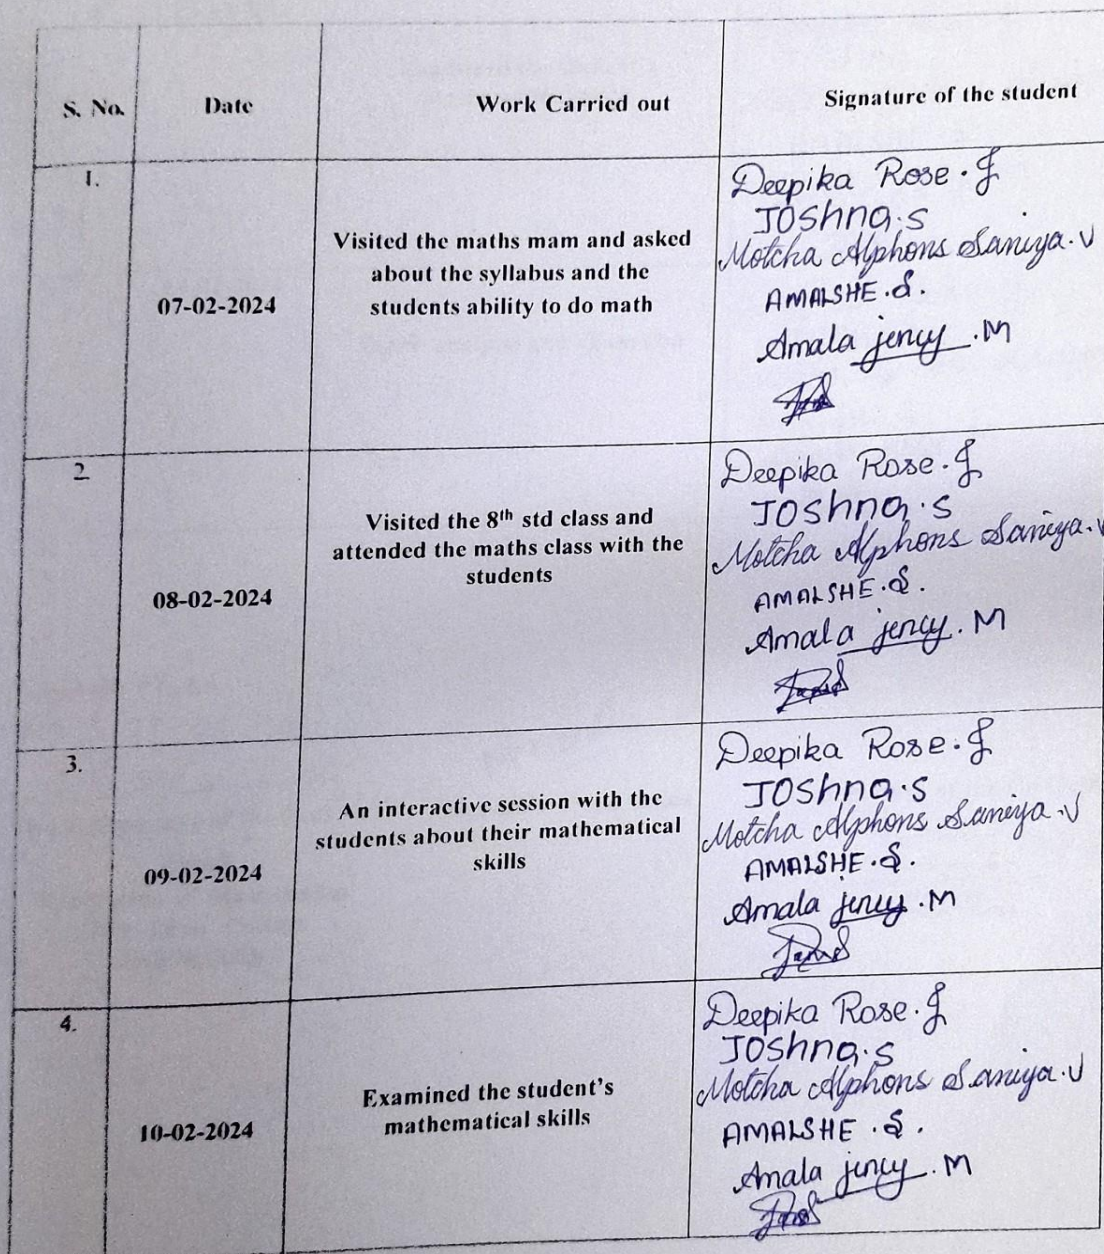 S. No. Date Work Carried out Signature of the student
1.
07-02-2024
Visited the maths mam and asked
about the syllabus and the
students ability to do math
Deepika Rose. J
JOShna.S
Motcha Alphons Saniya.V
AMALSHE.S.
Amala jency.M
2
08-02-2024
Visited the 8th std class and
attended the maths class with the
students
Deepika Rose. J
JOShna.S
Motcha Alphons Saniya.V
AMALSHE.S.
Amala jency.M
3.
09-02-2024
An interactive session with the
students about their mathematical
skills
Deepika Rose. J
JOShna.S
Motcha Alphons Saniya.V
AMALSHE.S.
Amala jency.M
4.
10-02-2024
Examined the student's
mathematical skills
Deepika Rose. J
JOShna.S
Motcha Alphons Saniya.V
AMALSHE.S.
Amala jency.M